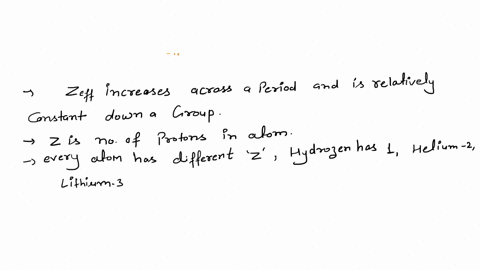 → Zeff increases across a Period and is relatively
Constant down a Group.
→ Z is no. of Protons in atom.
→ every atom has different 'Z', Hydrozen has 1, Helium-2,
Lithium-3